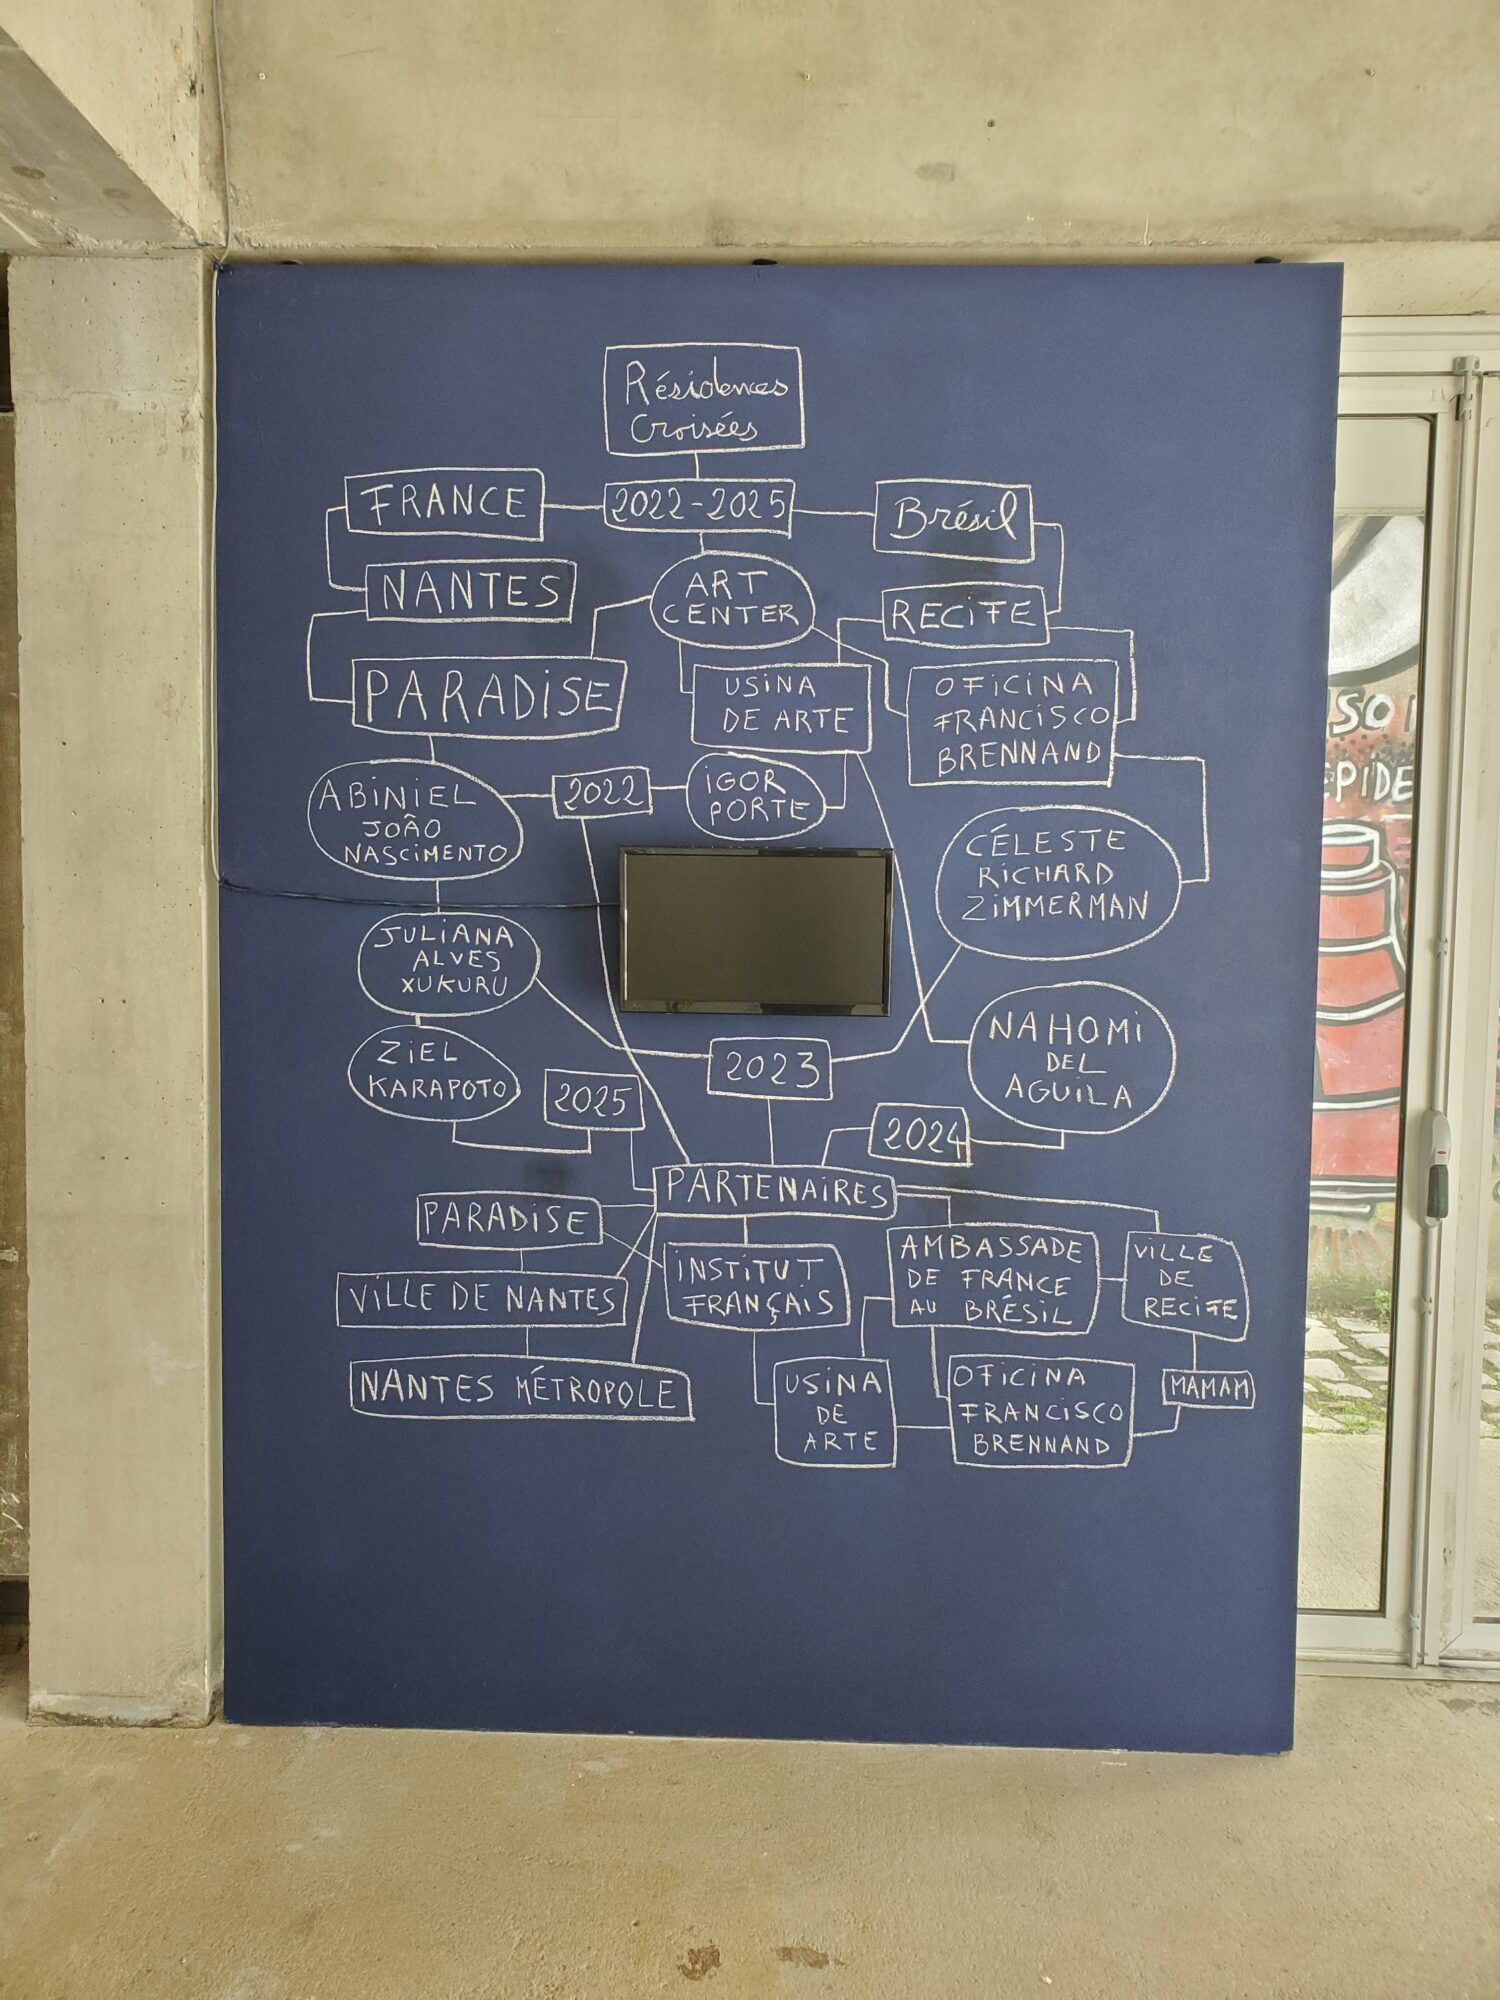 Résidences
Croisées
FRANCE
2022-2025
Brésil
NANTES
ART
CENTER
RECIFE
PARADISE
USINA
DE ARTE
OFICINA
FRANCISCO
BRENNAND
ABINIEL
JOÃO
NASCIMENTO
2022
IGOR
PORTE
CÉLESTE
RICHARD
ZIMMERMAN
JULIANA
ALVES
XUKURU
NAHOMI
DEL
AGUILA
ZIEL
KARAPOTO
2025
2023
2024
PARTENAIRES
PARADISE
INSTITUT
FRANÇAIS
AMBASSADE
DE FRANCE
AU BRÉSIL
VILLE
DE
RECIFE
VILLE DE NANTES
NANTES MÉTROPOLE
USINA
DE
ARTE
OFICINA
FRANCISCO
BRENNAND
MAMAM